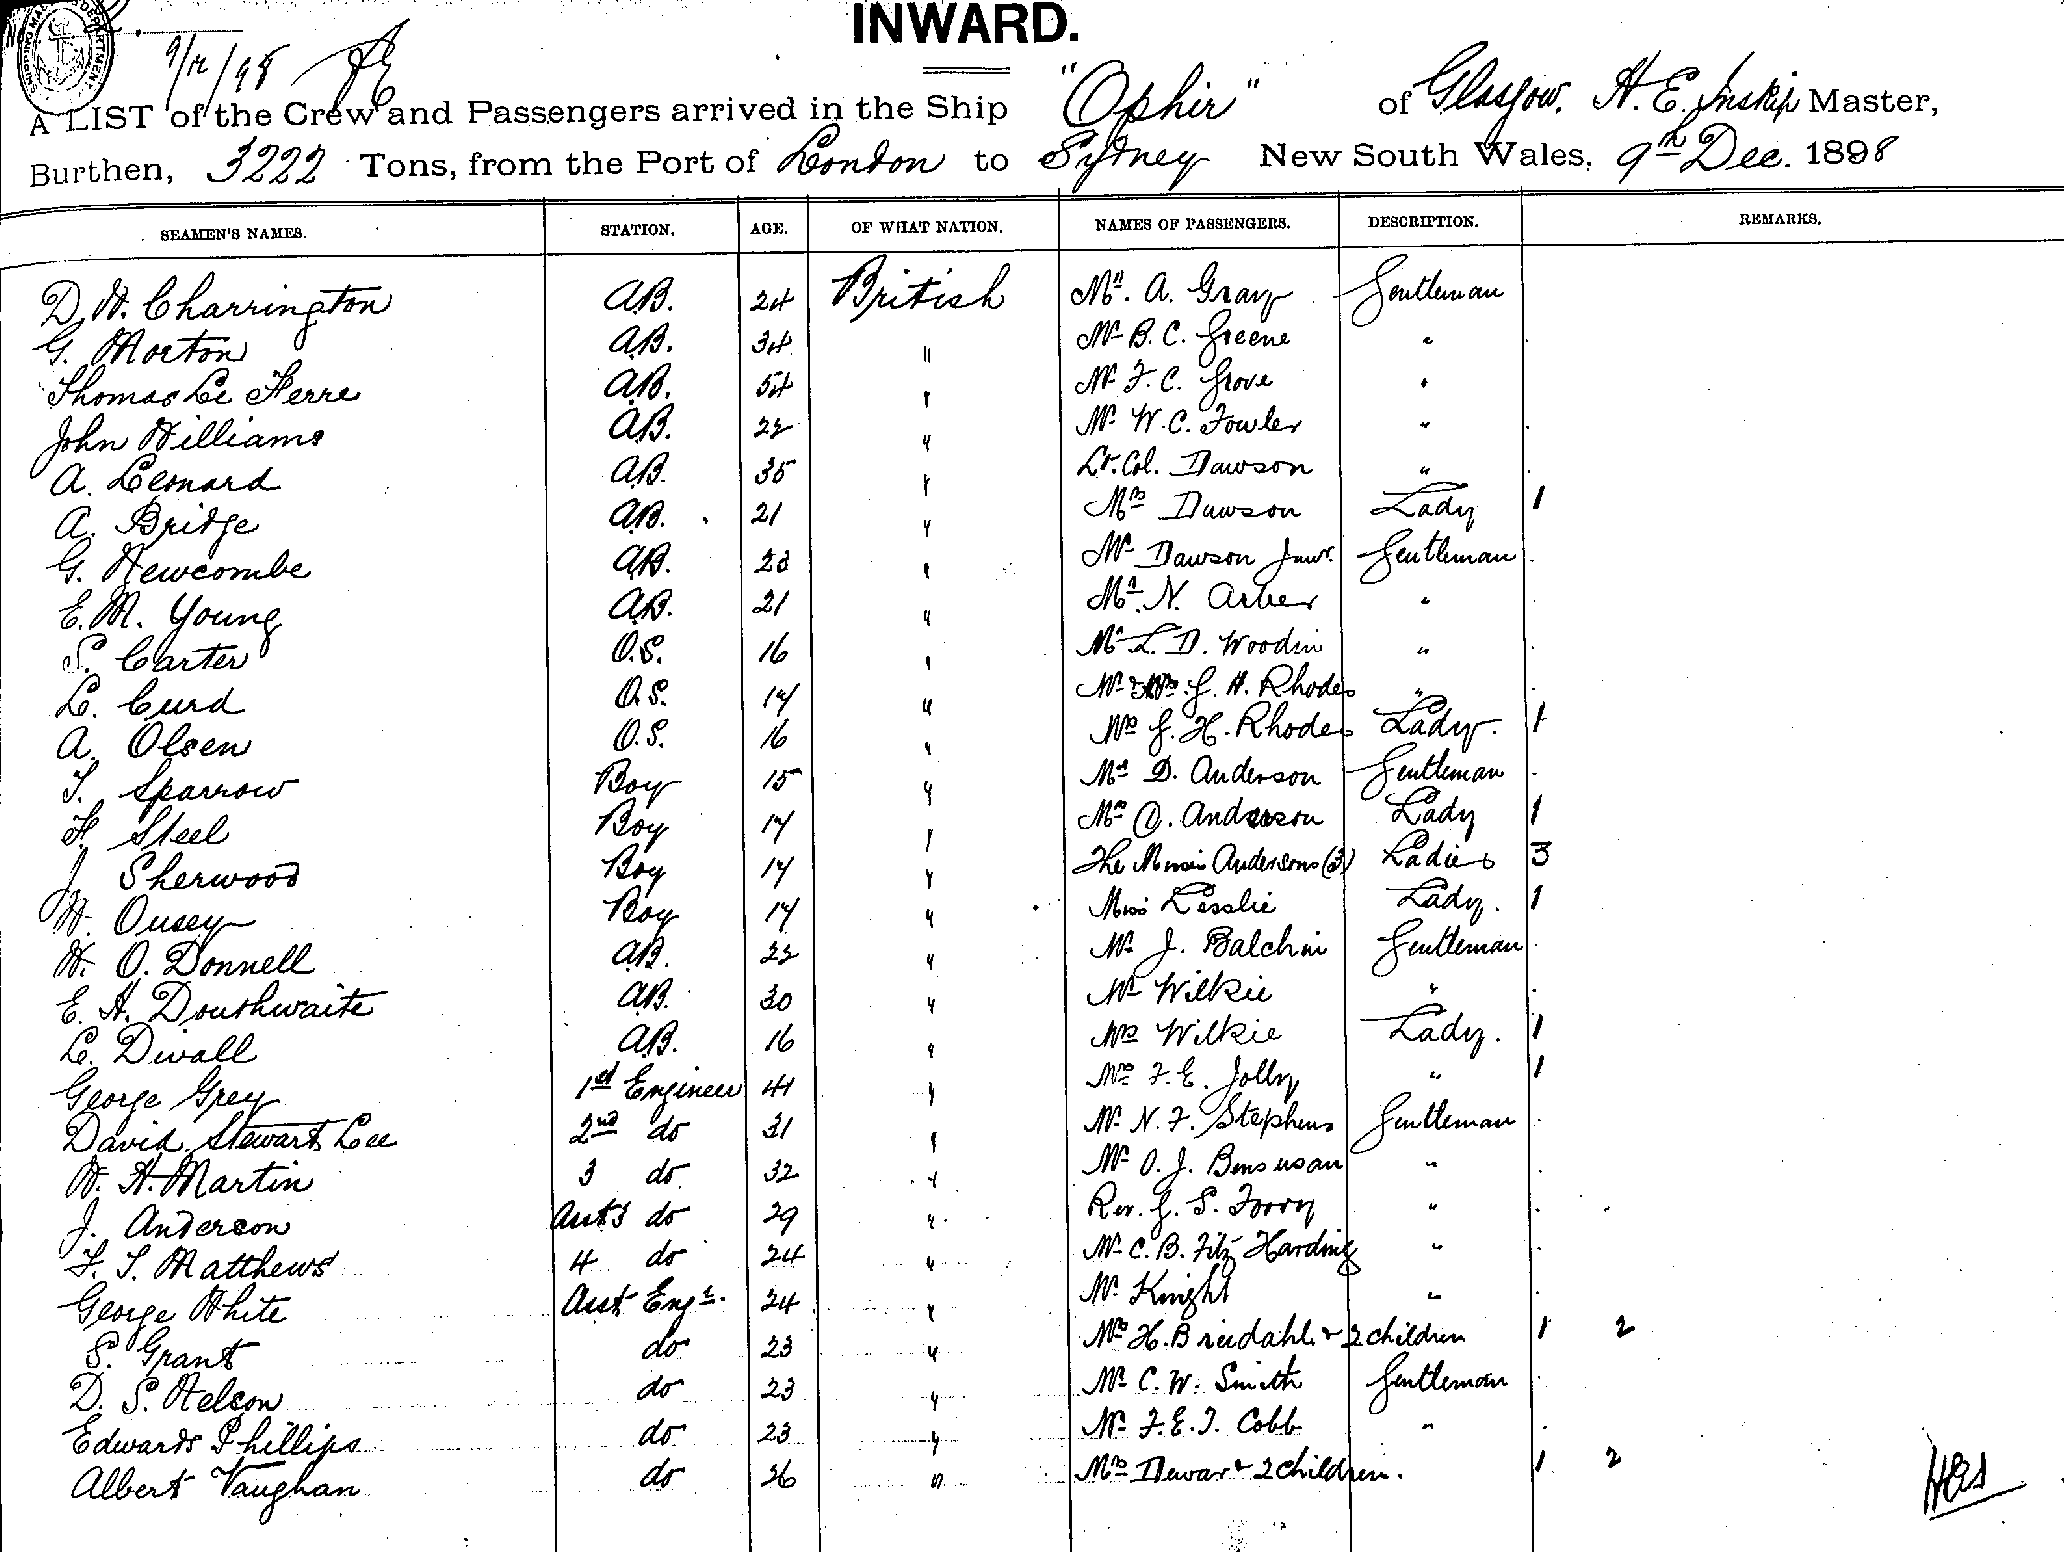 INWARD.
9/12/98
A LIST of the Crew and Passengers arrived in the Ship "Ophir" of Glasgow. H. E. Inskip Master,
Burthen, 3222 Tons, from the Port of London to Sydney New South Wales, 9th Dec. 1898
SEAMEN'S NAMES. STATION. AGE. OF WHAT NATION. NAMES OF PASSENGERS. DESCRIPTION. REMARKS.
D. W. Charrington A.B. 24 British Mr. A. Gray Gentleman
G. Morton A.B. 34 " Mr B. C. Greene "
Thomas Le Ferre A.B. 54 " Mr F. C. Grove "
John Williams A.B. 22 " Mr W. C. Fowler "
A. Leonard A.B. 35 " Lt. Col. Dawson "
A. Bridge A.B. 21 " Mrs Dawson Lady 1
G. Newcombe A.B. 23 " Mr Dawson Junr. Gentleman
E. M. Young A.B. 21 " Mr. N. Arber "
S. Carter O.S. 16 " Mr L. D. Woodin "
L. Curd O.S. 17 " Mr & Mrs G. H. Rhodes "
A. Olsen O.S. 16 " Mrs G. H. Rhodes Lady. 1
T. Sparrow Boy 15 " Mr D. Anderson Gentleman
F. Steel Boy 17 " Mrs D. Anderson Lady 1
J. Sherwood Boy 17 " The Misses Andersons (3) Ladies 3
W. Ousey Boy 17 " Miss Lesslie Lady. 1
W. O. Donnell A.B. 22 " Mr J. Balchin Gentleman
E. H. Douthwaite A.B. 30 " Mr Wilkie "
L. Divall A.B. 16 " Mrs Wilkie Lady. 1
George Grey 1st Engineer 41 " Mrs F. E. Jolly " 1
David Stewart Lee 2nd do 31 " Mr N. F. Stephens Gentleman
W. H. Martin 3 do 32 " Mr O. J. Bensusan "
J. Anderson Asst 3 do 29 " Rev. G. S. "
F. T. Matthews 4 do 24 " Mr C. B. Fitz Harding "
George White Asst Engr. 24 " Mr Knight "
S. Grant do 23 " Mrs H. Breidahl & 2 children 1 2
D. S. Nelson do 23 " Mr C. W. Smith Gentleman
Edward Phillips do 23 " Mr F. E. T. Cobb "
Albert Vaughan do 26 " Mrs Dewar & 2 children. 1 2